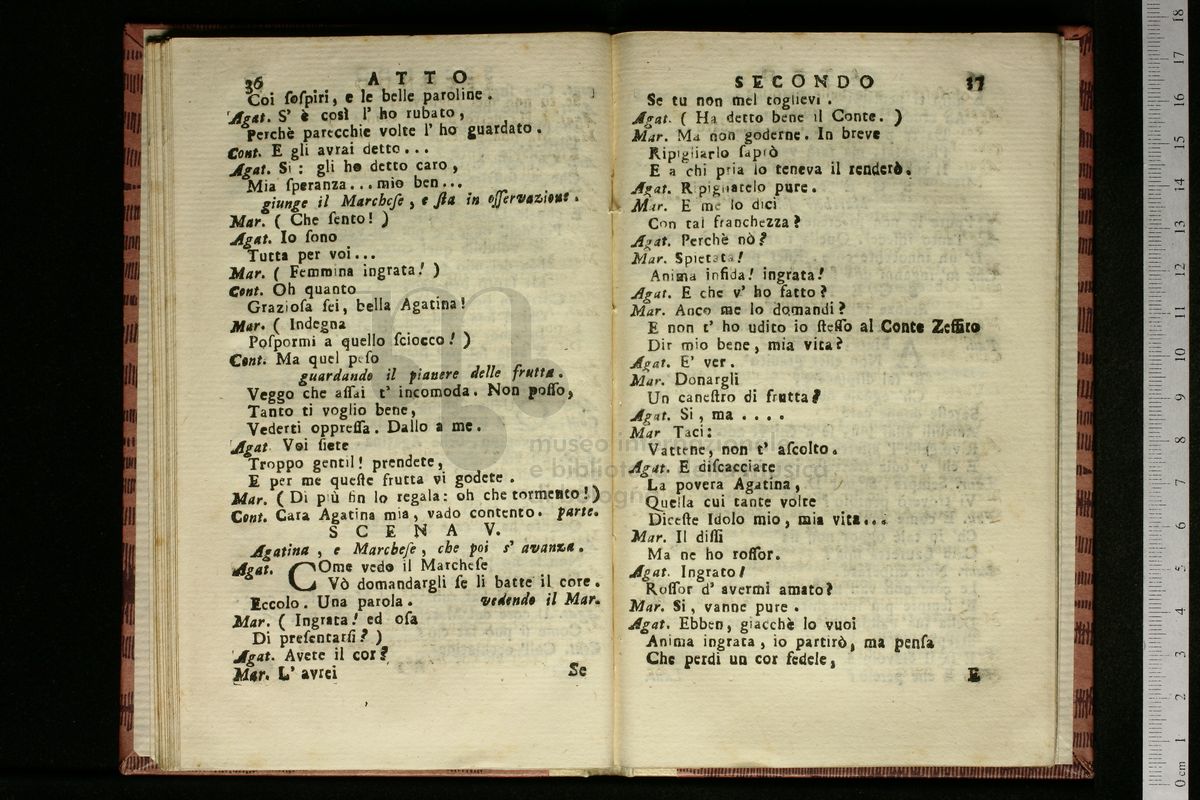 36 ATTO
Coi ſoſpiri, e le belle paroline.
Agat. S' è così l' ho rubato,
Perchè parecchie volte l' ho guardato.
Cont. E gli avrai detto...
Agat. Si: gli ho detto caro,
Mia ſperanza... mio ben...
giunge il Marcheſe, e ſta in oſſervazione.
Mar. ( Che ſento! )
Agat. Io ſono
Tutta per voi...
Mar. ( Femmina ingrata! )
Cont. Oh quanto
Grazioſa ſei, bella Agatina!
Mar. ( Indegna
Poſpormi a quello ſciocco! )
Cont. Ma quel peſo
guardando il pianere delle frutta.
Veggo che aſſai t' incomoda. Non poſſo,
Tanto ti voglio bene,
Vederti oppreſſa. Dallo a me.
Agat. Voi ſiete
Troppo gentil! prendete,
E per me queſte frutta vi godete.
Mar. ( Di più fin lo regala: oh che tormento!)
Cont. Cara Agatina mia, vado contento. parte.
SCENA V.
Agatina, e Marcheſe, che poi s' avanza.
Agat. COme vedo il Marcheſe
Vò domandargli ſe li batte il core.
Eccolo. Una parola. vedendo il Mar.
Mar. ( Ingrata! ed oſa
Di preſentarſi? )
Agat. Avete il cor?
Mar. L' avrei
Se
SECONDO 37
Se tu non mel toglievi.
Agat. ( Ha detto bene il Conte. )
Mar. Ma non goderne. In breve
Ripigliarlo ſaprò
E a chi pria lo teneva il renderò.
Agat. Ripigliatelo pure.
Mar. E me lo dici
Con tal franchezza?
Agat. Perchè nò?
Mar. Spietata!
Anima infida! ingrata!
Agat. E che v' ho fatto?
Mar. Anco me lo domandi?
E non t' ho udito io ſteſſo al Conte Zeffiro
Dir mio bene, mia vita?
Agat. E' ver.
Mar. Donargli
Un caneſtro di frutta?
Agat. Si, ma ....
Mar Taci:
Vattene, non t' aſcolto.
Agat. E diſcacciate
La povera Agatina,
Quella cui tante volte
Diceſte Idolo mio, mia vita...
Mar. Il diſſi
Ma ne ho roſſor.
Agat. Ingrato!
Roſſor d' avermi amato?
Mar. Si, vanne pure.
Agat. Ebben, giacchè lo vuoi
Anima ingrata, io partirò, ma penſa
Che perdi un cor fedele,
E
museo internazionale
e biblioteca della musica
di bologna